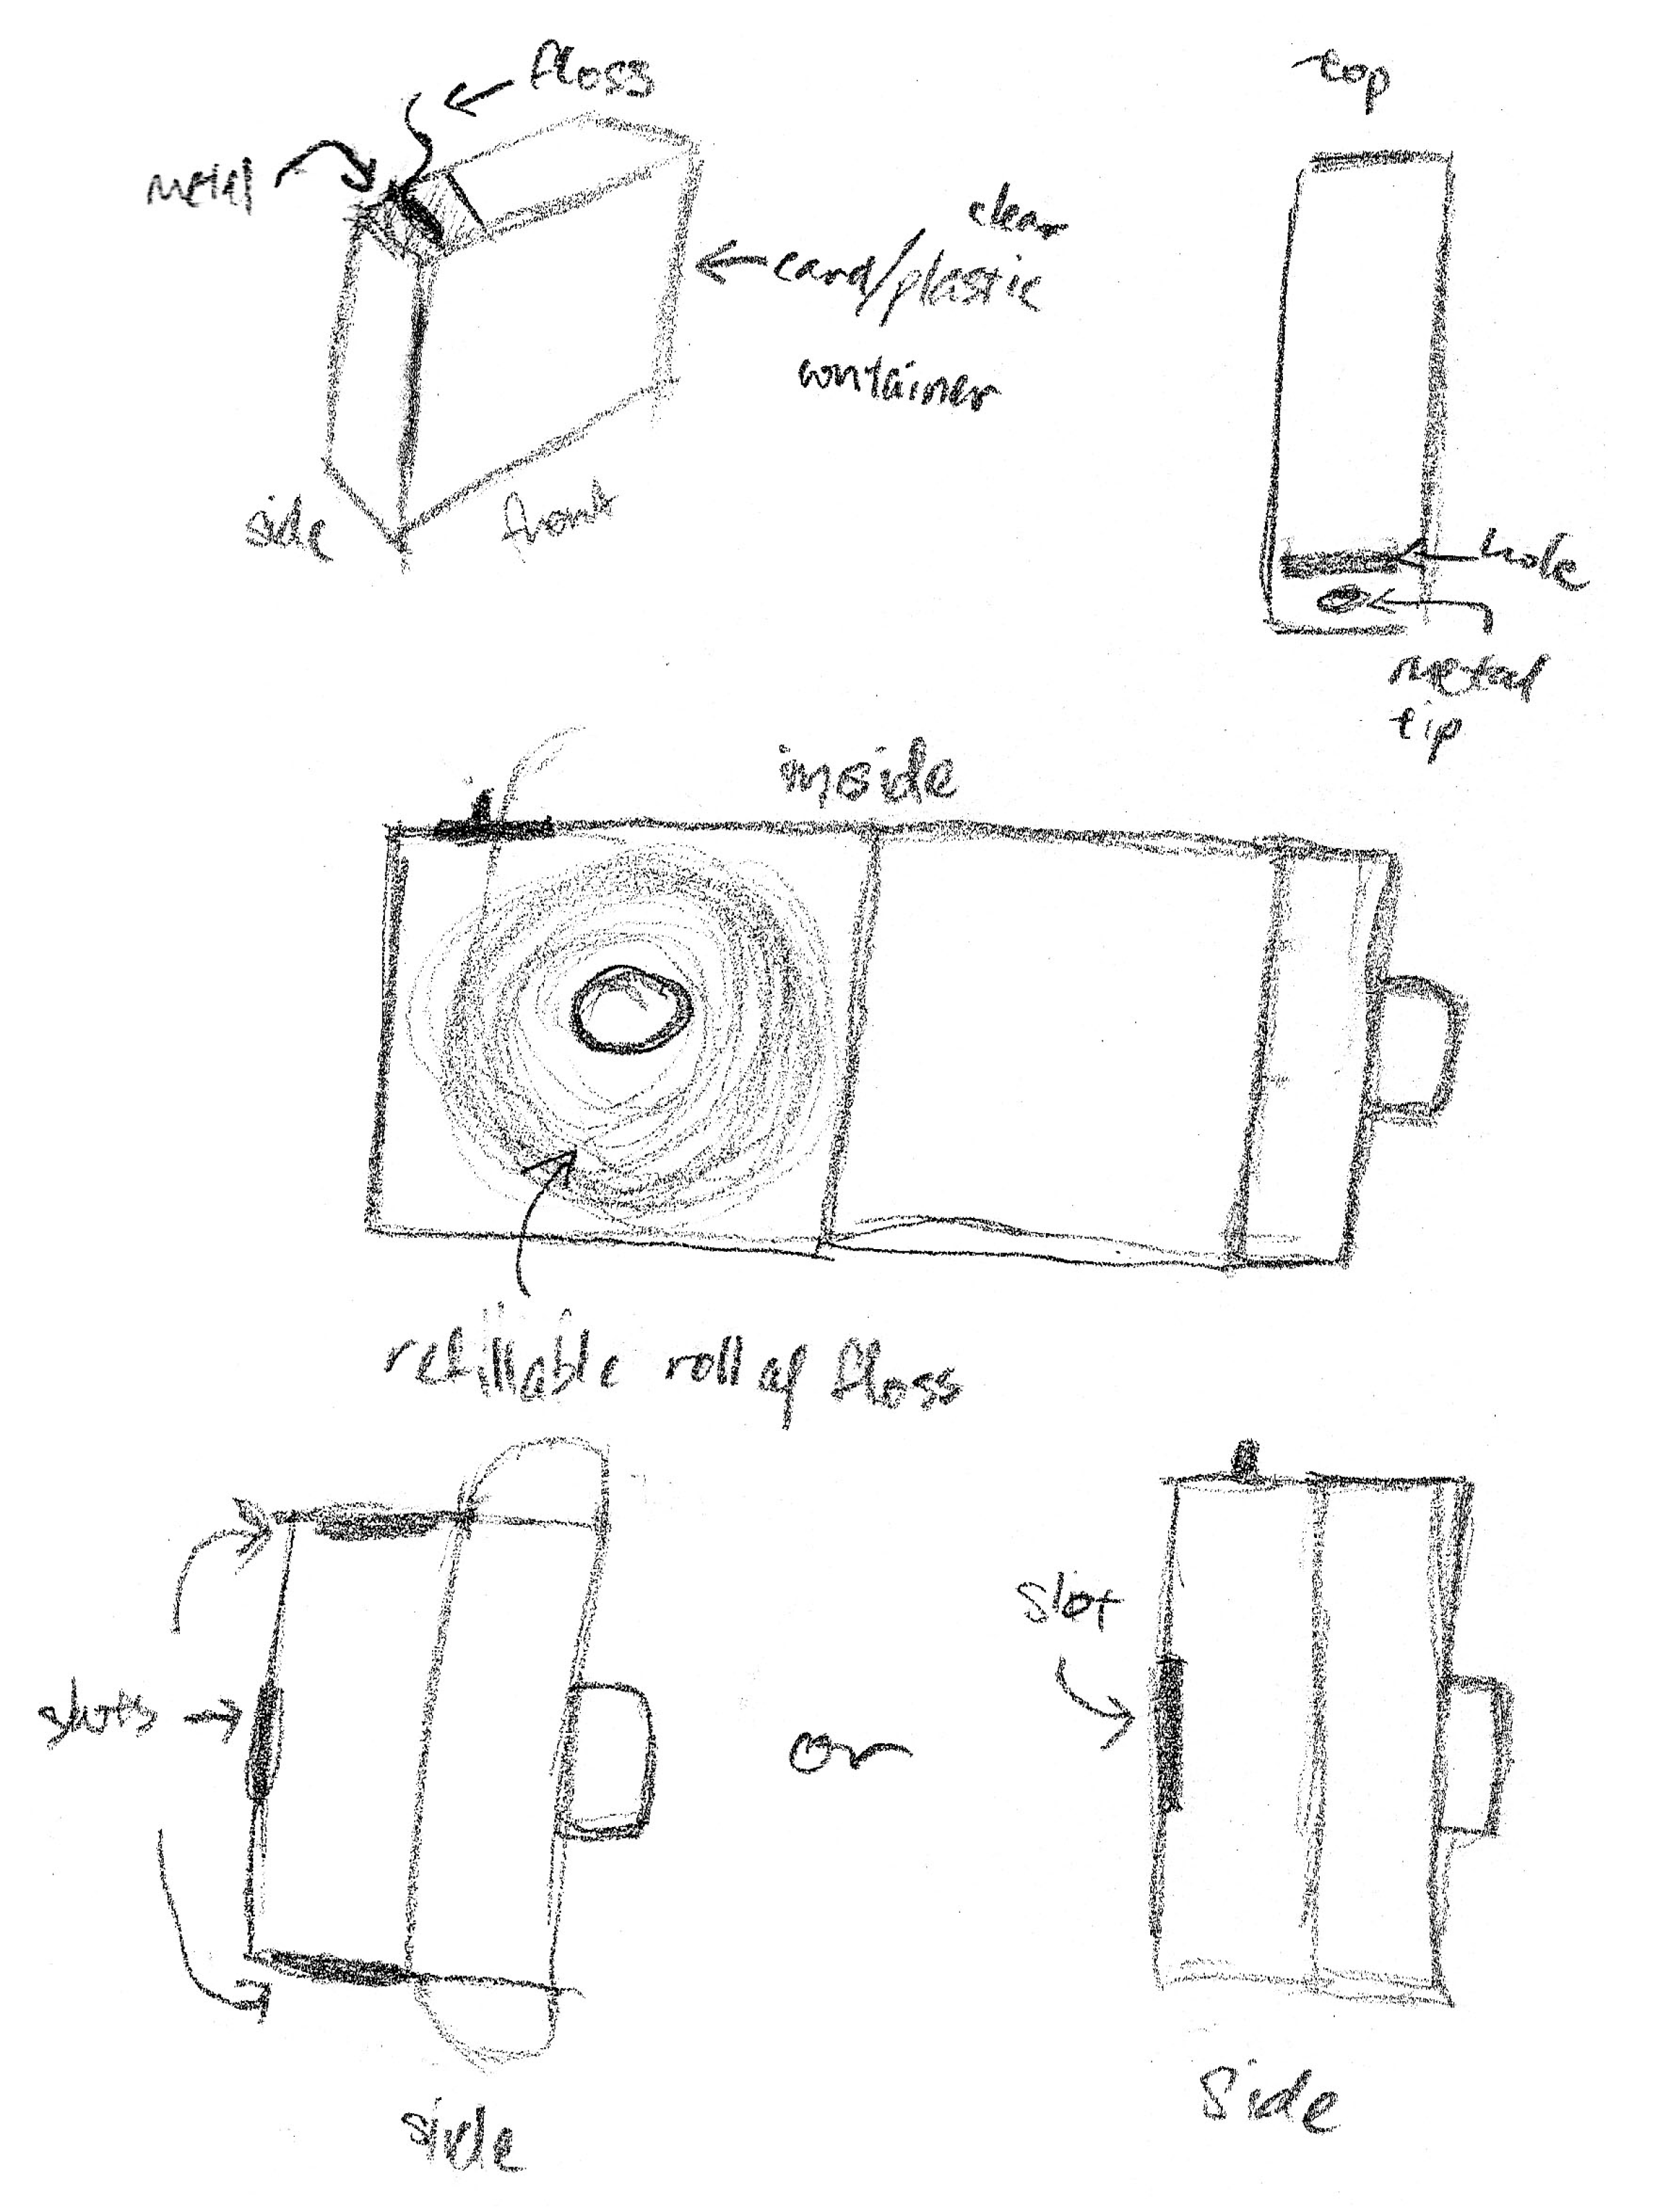 floss
top
metal
clear
card/plastic
container
side
front
hole
metal
tip
inside
refillable roll of floss
slot
slots
or
side
Side